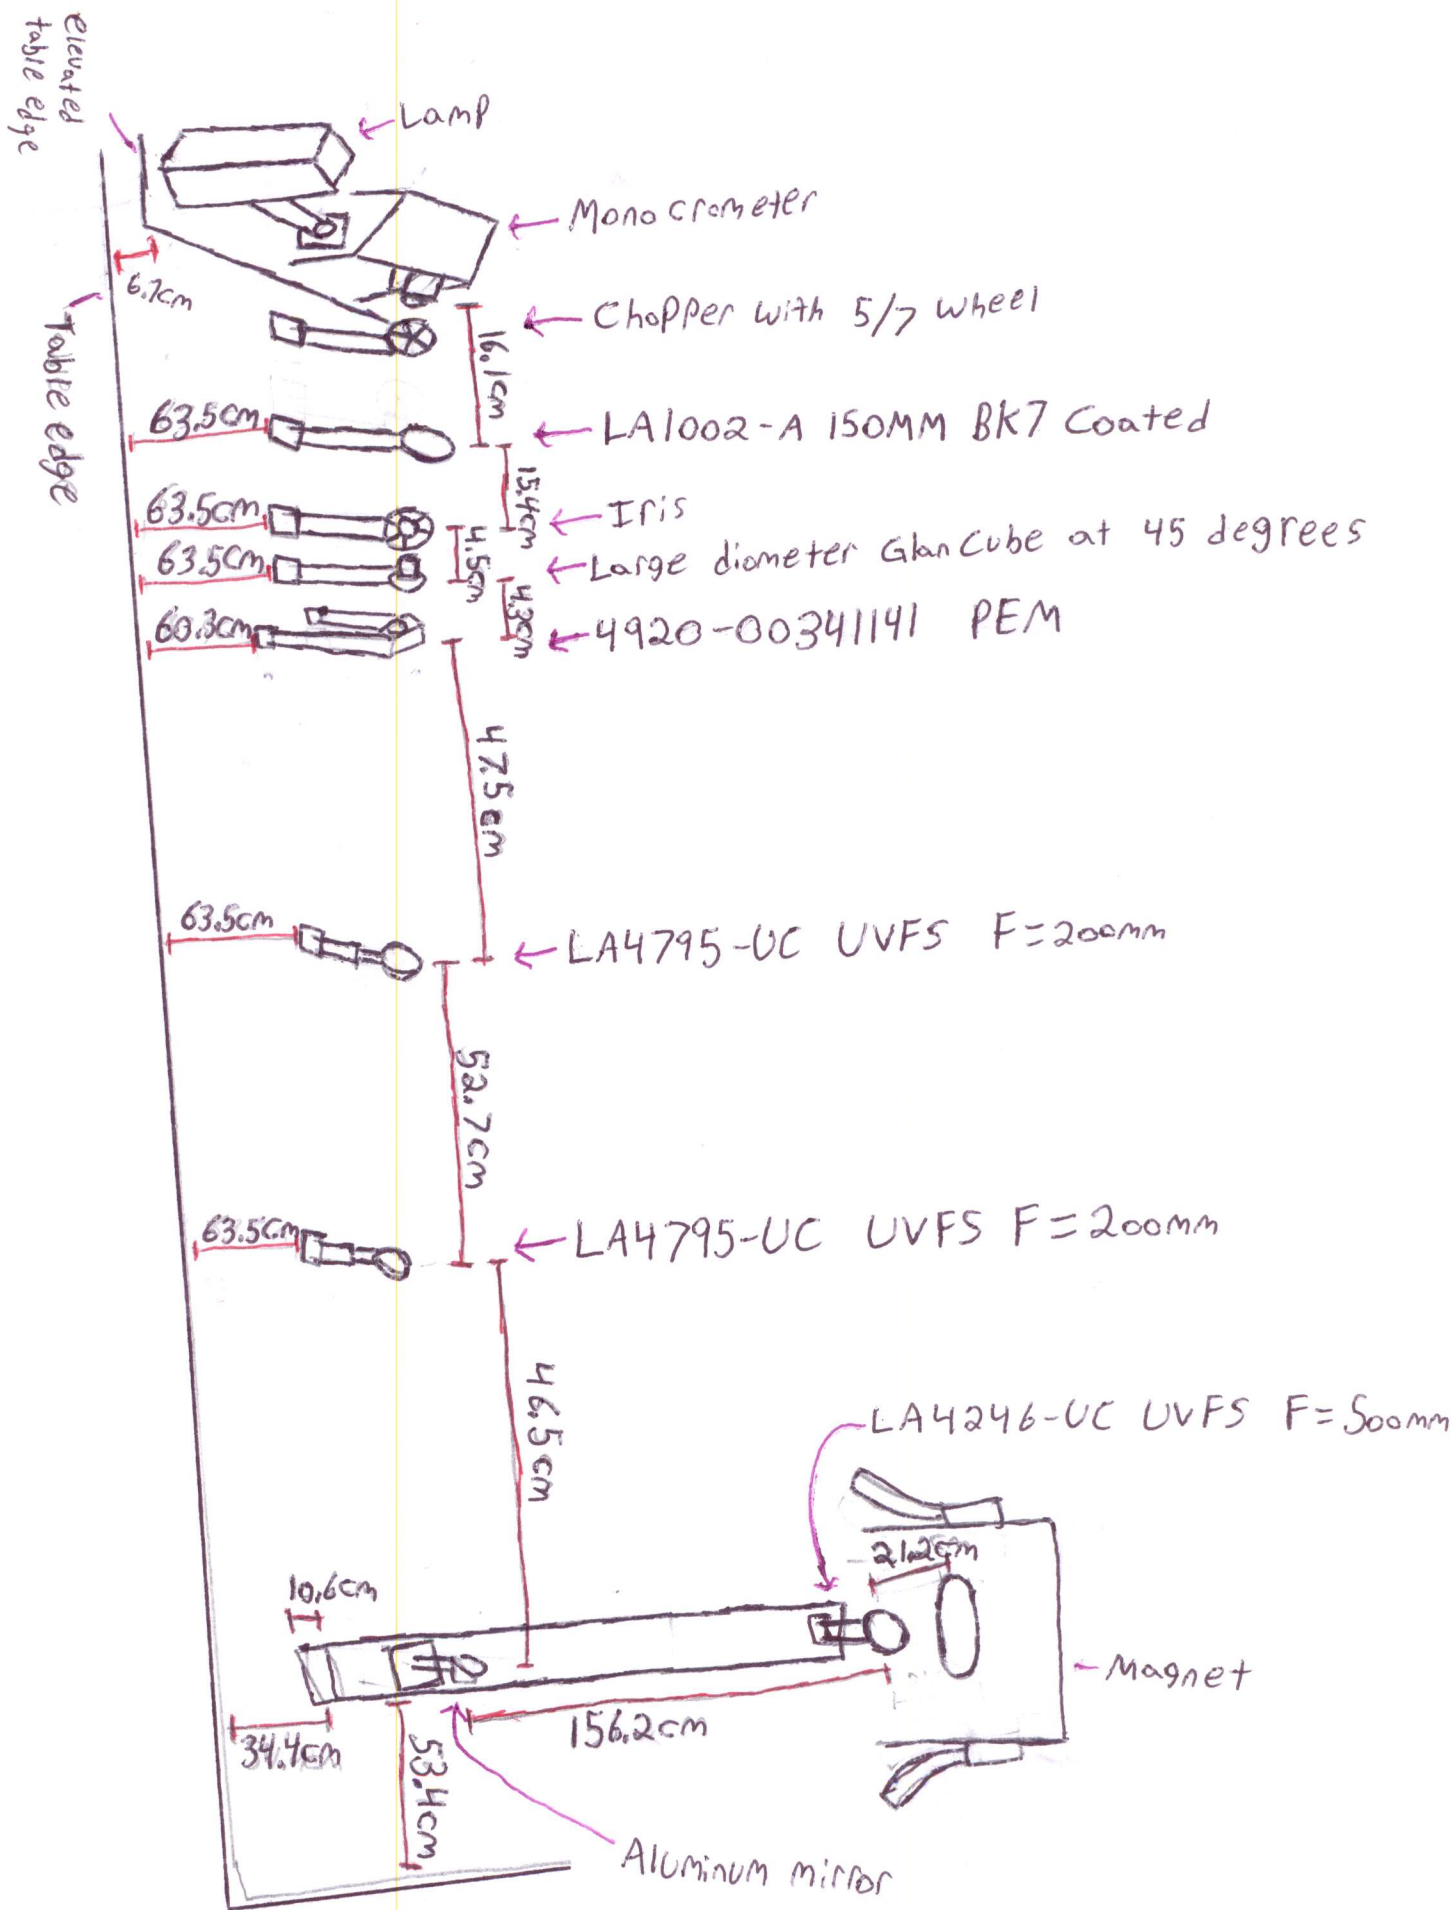 Elevated
table edge
Lamp
Monocrometer
6.7cm
Table edge
Chopper with 5/7 wheel
16.1cm
63.5cm
LA1002-A 150MM BK7 Coated
15.4cm
63.5cm
Iris
4.5cm
63.5cm
Large diameter Glan Cube at 45 degrees
4.3cm
60.3cm
4920-00341141 PEM
47.5cm
63.5cm
LA4795-UC UVFS F=200mm
52.7cm
63.5cm
LA4795-UC UVFS F=200mm
46.5cm
LA4246-UC UVFS F=500mm
21.2cm
10.6cm
Magnet
156.2cm
34.4cm
53.4cm
Aluminum mirror